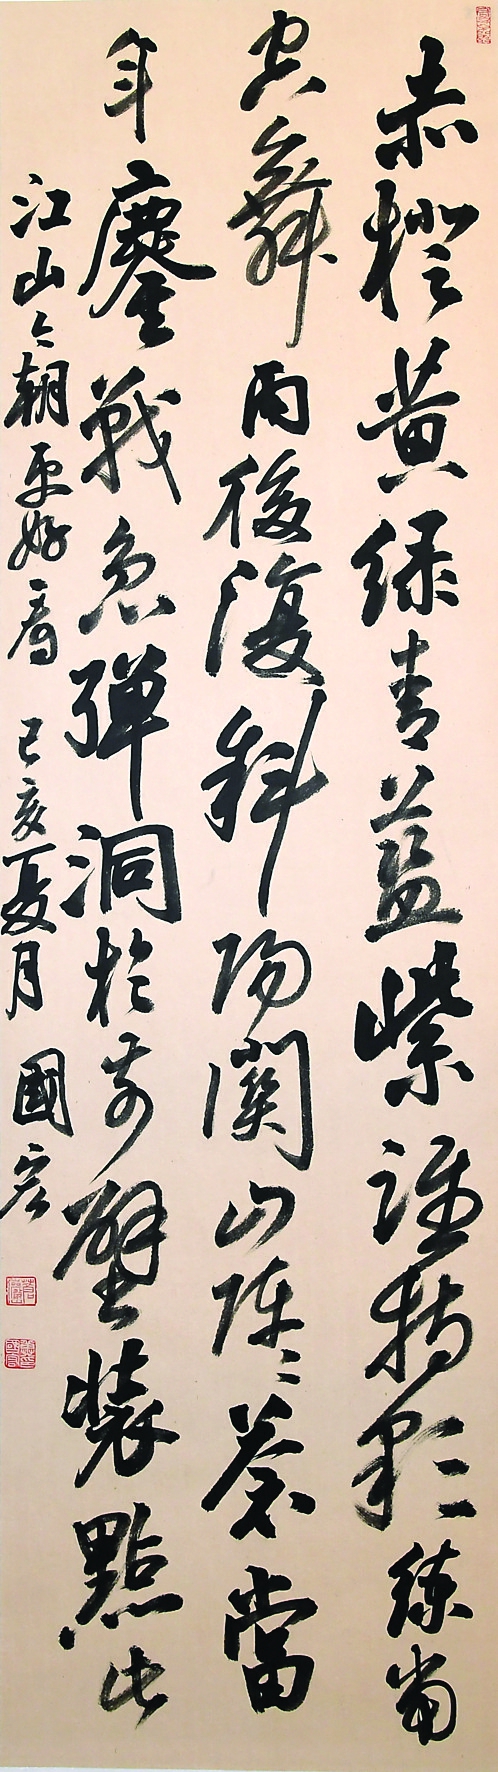 赤橙黄緑青藍紫誰持彩練當
空舞雨後復斜陽關山陣々蒼當
年鏖戰急彈洞於前壁裝點此
江山今朝更好看 己亥夏月 國宏